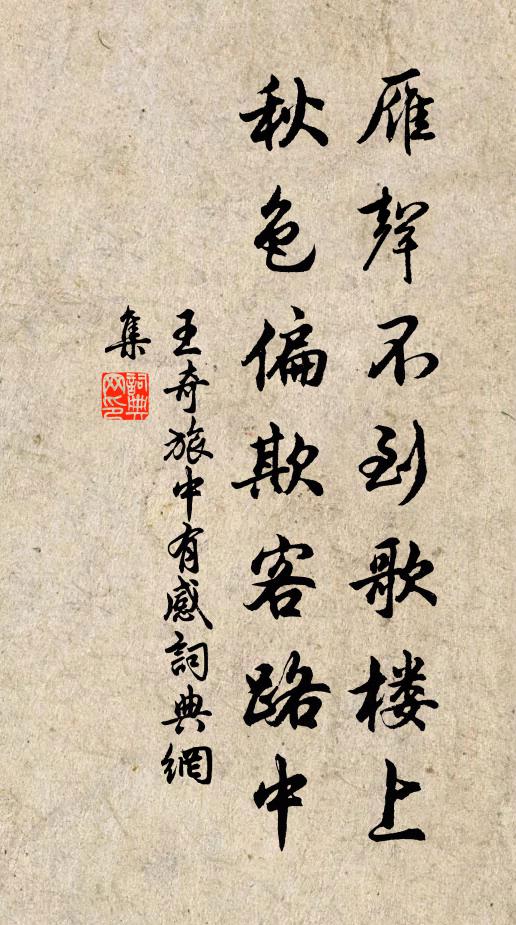 雁聲不到歌楼上
秋色偏欺客路中
王奇旅中有感詞典網
集
詞典
网印